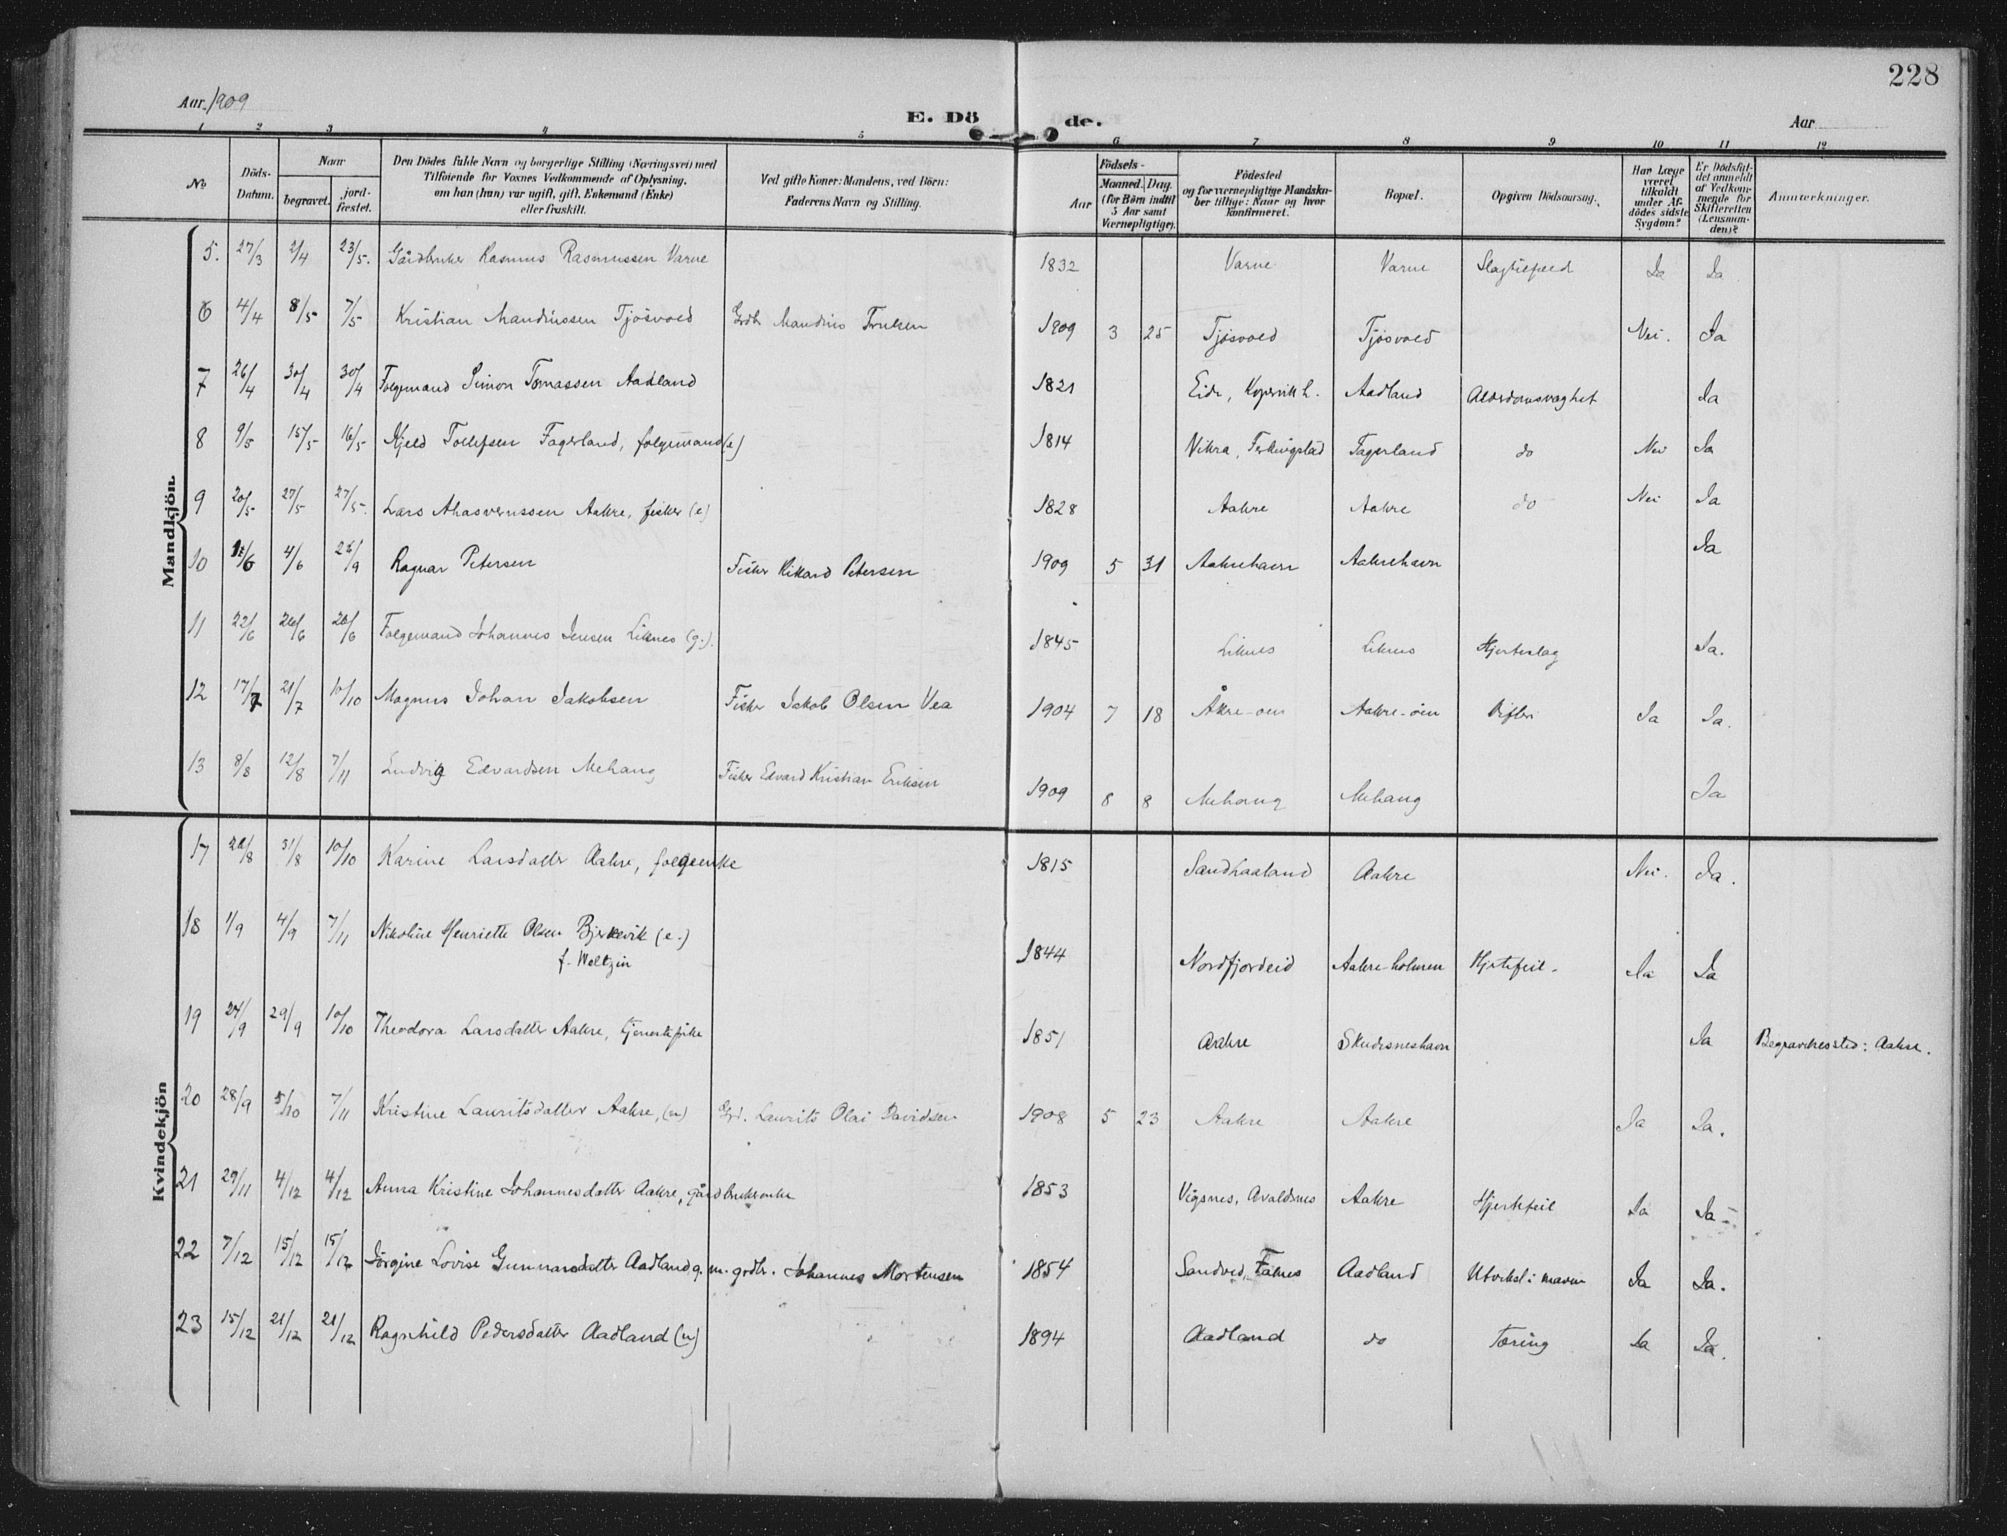 228
Aar 1909
E. Döde.
Aar
1 2 3 4 5 6 7 8 9 10 11 12
No
Döds-Datum.
Naar begravet. jordfæstet.
Den Dödes fulde Navn og borgerlige Stilling (Næringsvei) med Tilföiende for Voxnes Vedkommende af Oplysning, om han (hun) var ugift, gift, Enkemand (Enke) eller fraskilt.
Ved gifte Koner: Mandens, ved Börn: Faderens Navn og Stilling.
Födsels- Aar Maaned. Dag. (for Börn indtil 5 Aar samt Værnepligtige).
Födested og for værnepligtige Mandskaber tillige: Naar og hvor konfirmeret.
Bopæl.
Opgiven Dödsaarsag.
Har Læge været tilkaldt under Afdödes sidste Sygdom?
Er Dödsfaldet anmeldt af Vedkommende for Skifteretten (Lensmanden)?
Anmærkninger.
Mandkjön.
5. 27/3 2/4 23/5. Gårdbruker Rasmus Rasmussen Varne 1832 Varne Varne Slagtilfæld Ja Ja
6 4/4 8/5 7/5 Kristian Mandiussen Tjösvold Grdb. Mandius 1909 3 25 Tjösvold Tjösvold Nei. Ja
7 26/4 30/4 30/4 Folgemand Simon Tomassen Aadland 1821 Eide, Kopervik l. Aadland Alderdomsvaghet Ja
8 9/5 15/5 16/5 Kjeld Tollefsen Fagerland, folgemand (e) 1814 Vikra, Ferkingstad Fagerland do Nei Ja
9 20/5 27/5 27/5. Lars Ahasverussen Aakre, fisker (e) 1828 Aakre Aakre do Nei Ja
10 4/6 Ragnar Petersen Fisker Rikard Petersen 1909 5 31 Aakrehavn Aakrehavn Ja
11 22/6 26/6 26/6 Folgemand Johannes Jensen Liknes (g.). 1845 Liknes Liknes Hjerteslag Ja.
12 17/7 21/7 10/10 Magnus Johan Jakobsen Fisker Jakob Olsen Vea 1904 7 18 Åkre-öen Aakre-öen Difteri Ja Ja.
13 8/8 12/8 7/11 Ludvig Edvardsen Mehaug Fisker Edvard Kristian Eriksen 1909 8 8 Mehaug Mehaug Ja
Kvindekjön
17 31/8 10/10 Karine Larsdatter Aakre, folgeenke 1815 Sandhaaland Aakre Nei. Ja.
18 1/9 4/9 7/11 Nikoline Henriette Olsen Bjerkevik (e.)
f. Weltzin 1844 Nordfjordeid Aakre-holmen Hjertefeil. Ja Ja
19 24/9 29/9 10/10 Theodora Larsdatter Aakre, tjenestepike 1851 Aakre Skudesneshavn Ja Begravelsessted: Aakre.
20 28/9 5/10 7/11 Kristine Lauritsdatter Aakre, (u) Grd. Laurits Olai Davidsen 1908 5 23 Aakre Aakre Ja Ja.
21 29/11 4/12 4/12 Anna Kristine Johannesdatter Aakre, gårdbrukerenke 1853 Vigsnes, Avaldsnes Aakre Hjertefeil Ja Ja
22 7/12 15/12 15/12 Jörgine Lovise Gunnarsdatter Aadland g. m. grdbr. Johannes Mortensen 1854 Sandved, Falnes Aadland Utvekst i maven Ja Ja.
23 15/12 21/12 21/12 Ragnhild Pedersdatter Aadland (u) 1894 Aadland do Tæring Ja Ja.